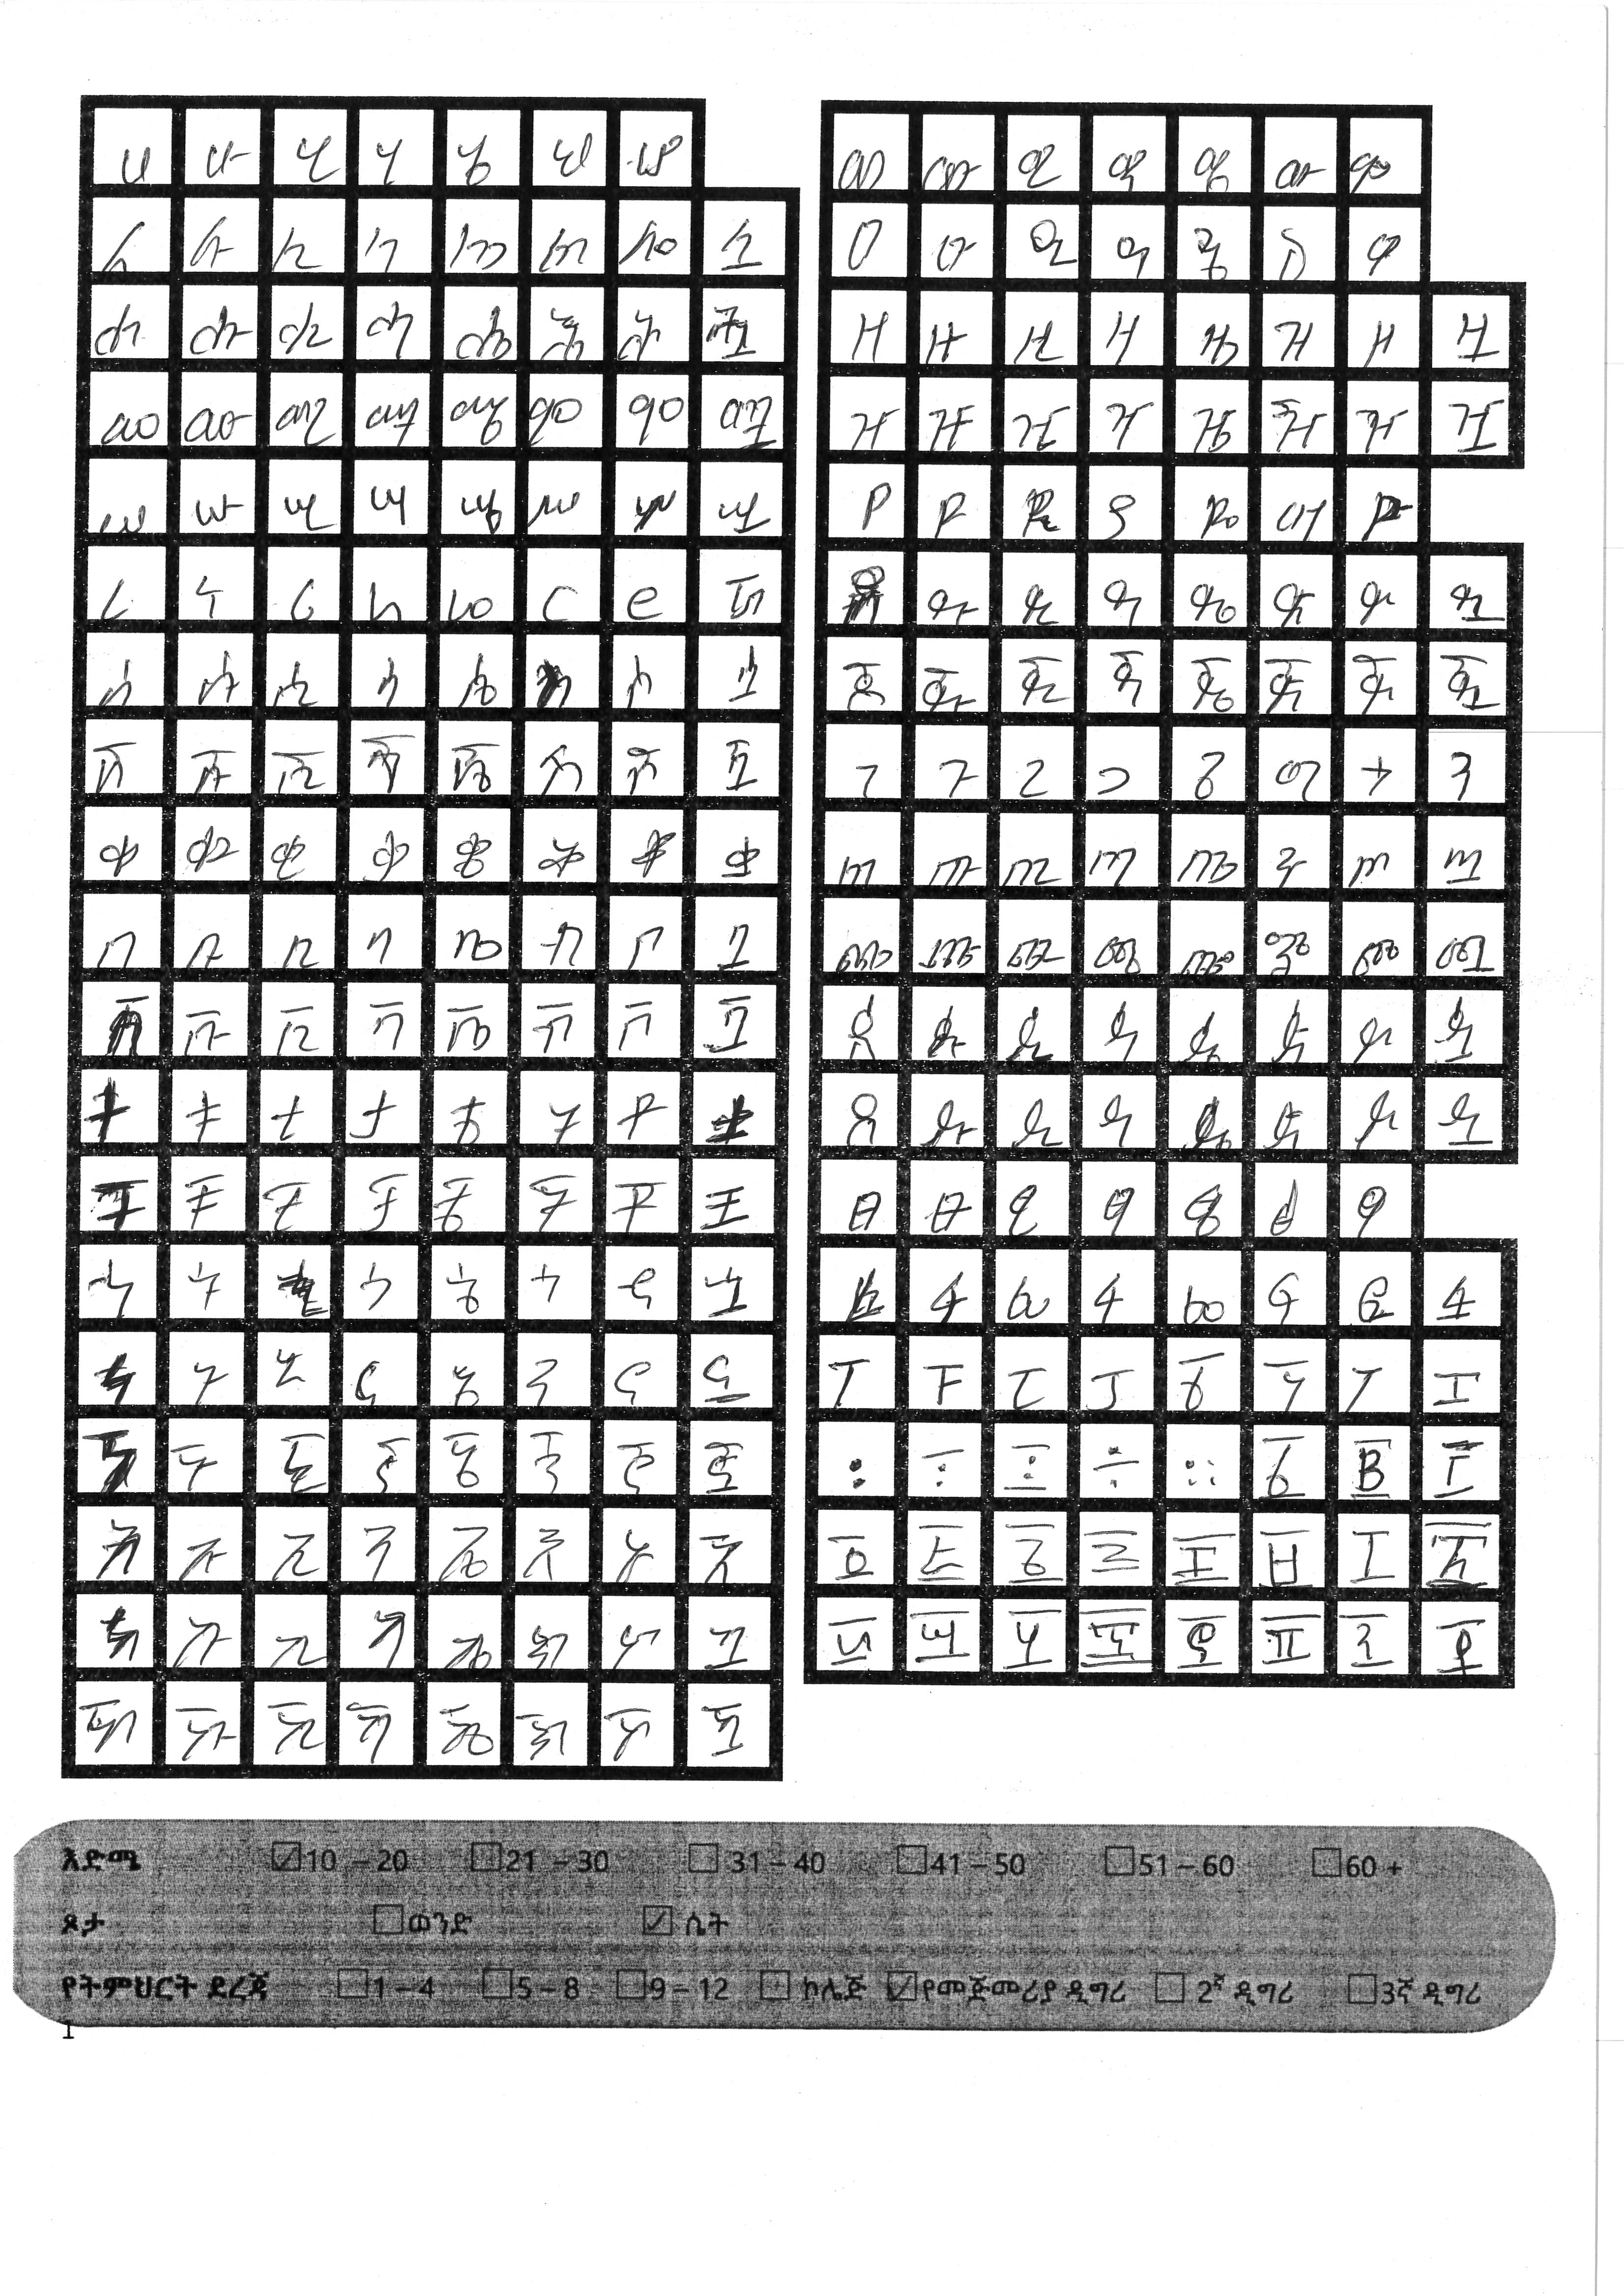 ሀ ሁ ሂ ሃ ሄ ህ ሆ
ለ ሉ ሊ ላ ሌ ል ሎ ሏ
ሐ ሑ ሒ ሓ ሔ ሕ ሖ ሗ
መ ሙ ሚ ማ ሜ ም ሞ ሟ
ሠ ሡ ሢ ሣ ሤ ሥ ሦ ሧ
ረ ሩ ሪ ራ ሬ ር ሮ ሯ
ሰ ሱ ሲ ሳ ሴ ስ ሶ ሷ
ሸ ሹ ሺ ሻ ሼ ሽ ሾ ሿ
ቀ ቁ ቂ ቃ ቄ ቅ ቆ ቋ
በ ቡ ቢ ባ ቤ ብ ቦ ቧ
ቨ ቩ ቪ ቫ ቬ ቭ ቮ ቯ
ተ ቱ ቲ ታ ቴ ት ቶ ቷ
ቸ ቹ ቺ ቻ ቼ ች ቾ ቿ
ኁ ኋ
ነ ኑ ኒ ና ኔ ን ኖ ኗ
ኘ ኙ ኚ ኛ ኜ ኝ ኞ ኟ
አ ኡ ኢ ኣ ኤ እ ኦ ኧ
ከ ኩ ኪ ካ ኬ ክ ኮ ኳ
ኸ ኹ ኺ ኻ ኼ ኽ ኾ
ወ ዉ ዊ ዋ ዌ ው ዎ
ዐ ዑ ዒ ዓ ዔ ዕ ዖ
ዘ ዙ ዚ ዛ ዜ ዝ ዞ ዟ
ዠ ዡ ዢ ዣ ዤ ዥ ዦ ዧ
የ ዩ ዪ ያ ዬ ይ ዮ
ደ ዱ ዲ ዳ ዴ ድ ዶ ዷ
ጀ ጁ ጂ ጃ ጄ ጅ ጆ ጇ
ገ ጉ ጊ ጋ ጌ ግ ጎ ጓ
ጠ ጡ ጢ ጣ ጤ ጥ ጦ ጧ
ጨ ጩ ጪ ጫ ጬ ጭ ጮ ጯ
ጰ ጱ ጲ ጳ ጴ ጵ ጶ ጷ
ጸ ጹ ጺ ጻ ጼ ጽ ጾ ጿ
ፀ ፁ ፂ ፃ ፄ ፅ ፆ
ፈ ፉ ፊ ፋ ፌ ፍ ፎ ፏ
ፐ ፑ ፒ ፓ ፔ ፕ ፖ ፗ
፡ ፣ ፤ ፥ ፡፡ ፩ ፪ ፫
፬ ፭ ፮ ፯ ፰ ፱ ፲
፶ ፸ ፹ ፺ ፻
እድሜ 10 – 20 21 – 30 31 – 40 41 – 50 51 – 60 60 +
ጾታ ወንድ ሴት
የትምህርት ደረጃ 1 – 4 5 – 8 9 – 12 ኮሌጅ የመጀመሪያ ዲግሪ 2ኛ ዲግሪ 3ኛ ዲግሪ
1